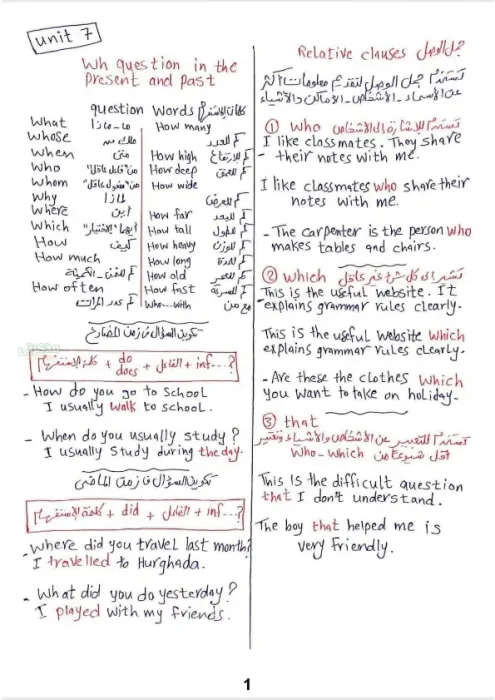 unit 7
Wh question in the
present and past
question Words كلمات الاستفهام
What ما - ماذا
Whose ملك من
When متى
Who من "فاعل عاقل"
Whom من "مفعول عاقل"
Why لماذا
Where أين
Which أيهما "الاختيار"
How كيف
How much كم الثمن - الكمية
How often كم عدد المرات
How many كم للعدد
How high كم للارتفاع
How deep كم للعمق
How wide كم للعرض
How far كم للبعد
How tall كم للطول
How heavy كم للوزن
How long كم للمدة
How old كم للعمر
How fast كم للسرعة
Who...with مع من
تكوين السؤال فى زمن المضارع
كلمة الاستفهام + do does + الفاعل + inf...?
- How do you go to school
I usually walk to school.
- When do you usually study?
I usually study during the day.
تكوين السؤال فى زمن الماضى
كلمة الاستفهام + did + الفاعل + inf...?
- Where did you travel last month?
I travelled to Hurghada.
- What did you do yesterday?
I played with my friends.
Relative clauses جمل الوصل
تستخدم جمل الوصل لتقديم معلومات أكثر
عن الأسماء - الأشخاص - الأماكن والأشياء
① Who تستخدم للإشارة إلى الأشخاص
I like classmates. They share
- their notes with me.
I like classmates who share their
notes with me.
- The carpenter is the person who
makes tables and chairs.
② Which تشير إلى كل شئ غير عاقل
This is the useful website. It
explains grammar rules clearly.
This is the useful website which
explains grammar rules clearly.
- Are these the clothes which
you want to take on holiday.
③ that
تستخدم للتعبير عن الأشخاص والأشياء وتعتبر
أقل شيوعا من Who - Which
This is the difficult question
that I don't understand.
The boy that helped me is
very friendly.
1